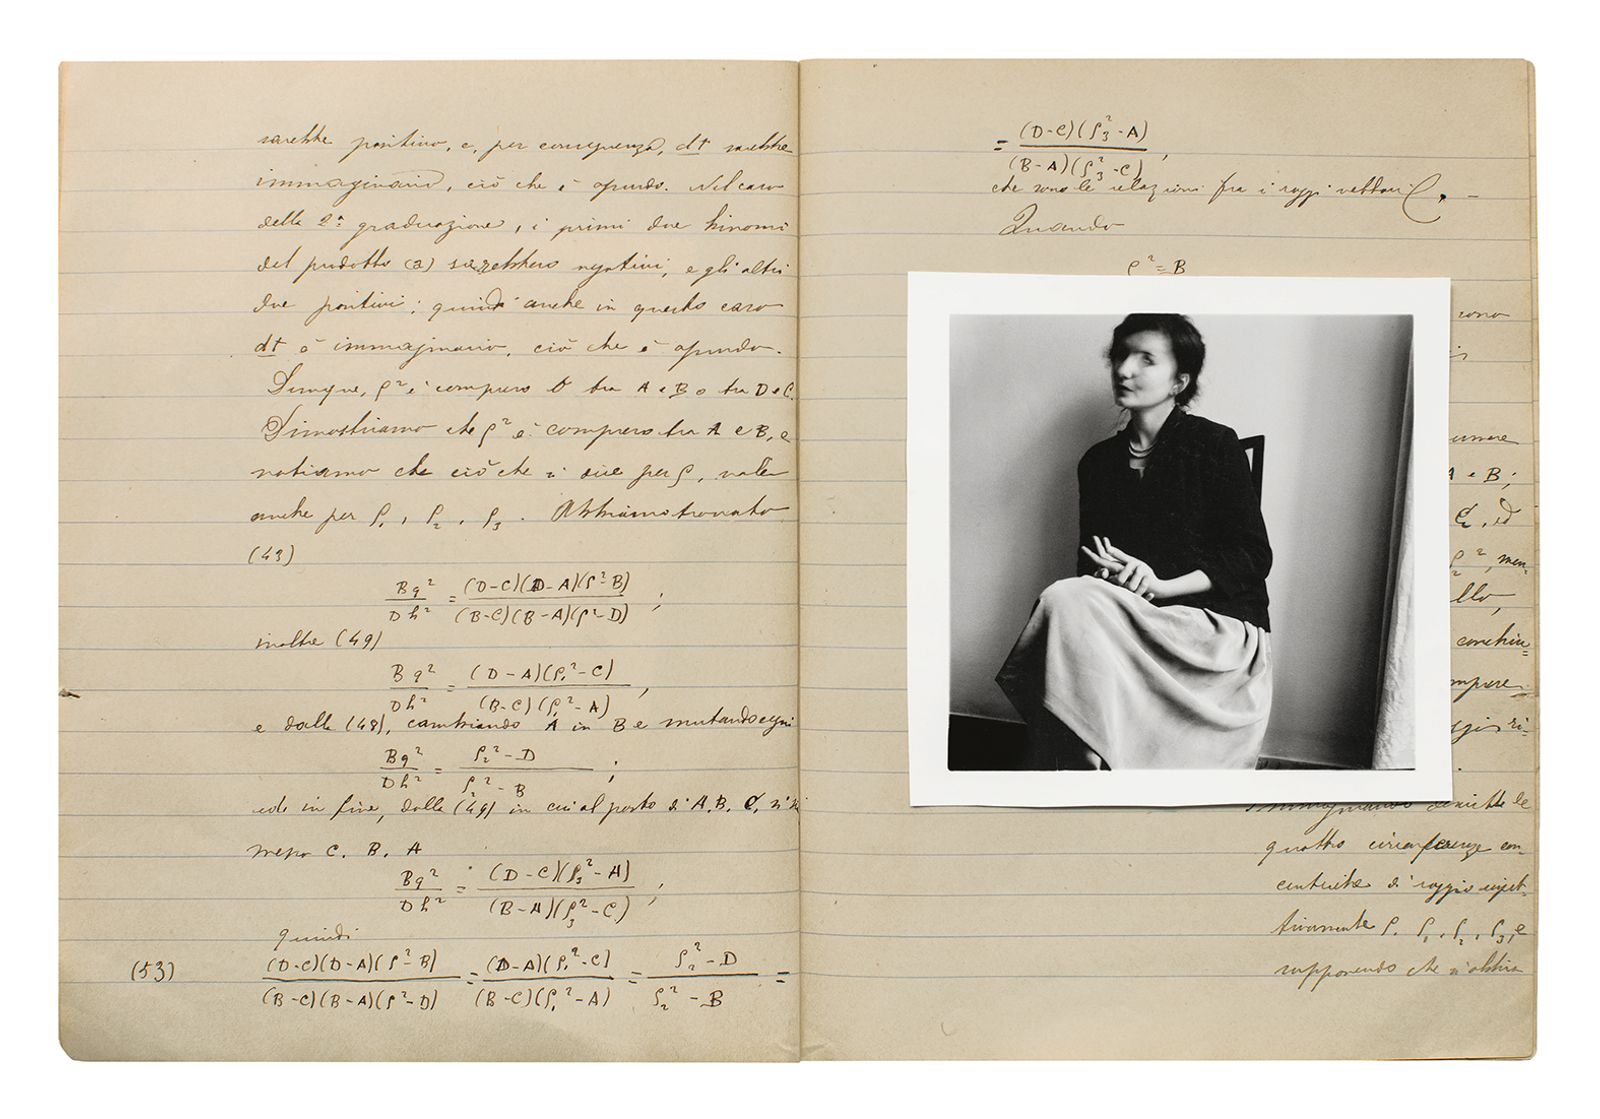 sarebbe positivo, e, per conseguenza, dt sarebbe
immaginario, ciò che è assurdo. Nel caso
della 2ª graduazione, i primi due binomi
del prodotto (a) sarebbero negativi, e gli altri
due positivi; quindi anche in questo caso
dt è immaginario, ciò che è assurdo.
Dunque, ρ² è compreso o tra A e B o tra D e C.
Dimostriamo che ρ² è compreso tra A e B, e
notiamo che ciò che si dice per ρ, vale
anche per ρ₁, ρ₂, ρ₃. Abbiamo trovato
(43)
Bg²/Dh² = (D-C)(D-A)(ρ²-B)/(B-C)(B-A)(ρ²-D) ;
inoltre (49)
Bg²/Dh² = (D-A)(ρ₁²-C)/(B-C)(ρ₁²-A) ,
e dalla (48), cambiando A in B e mutando segni
Bg²/Dh² = ρ₂²-D/ρ₂²-B ;
ed in fine, dalla (49) in cui al posto di A, B, C, si
C. B. A
Bg²/Dh² = (D-C)(ρ₃²-A)/(B-A)(ρ₃²-C) ;
quindi
(53) (D-C)(D-A)(ρ²-B)/(B-C)(B-A)(ρ²-D) = (D-A)(ρ₁²-C)/(B-C)(ρ₁²-A) = ρ₂²-D/ρ₂²-B =
= (D-C)(ρ₃²-A)/(B-A)(ρ₃²-C) ,
che sono le relazioni fra i raggi vettori. -
Quando
ρ² = B
sono
A e B;
C, ed
ρ₂², men-
llo,
conchiu=
mpere
ggi ri-
descritte le
quattro circonferenze con-
centriche di raggio rispet-
tivamente ρ, ρ₁, ρ₂, ρ₃, e
supponendo che si abbia